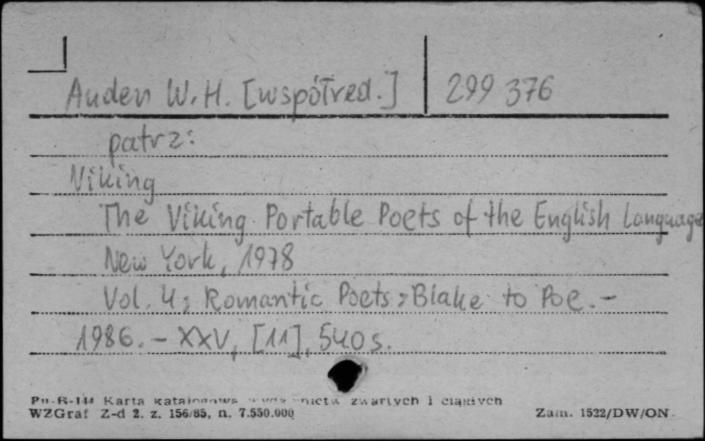 Auden W.H. [współred.] 299 376
patrz:
Viking
The Viking Portable Poets of the English Language
New York, 1978
Vol. 4; Romantic Poets; Blake to Poe. -
1986. - XXV, [11], 540 s.
Pu-B-144 Karta katalogowa zwartych i ciągłych
WZGraf Z-d 2. z. 156/85, n. 7.550.000 Zam. 1522/DW/ON